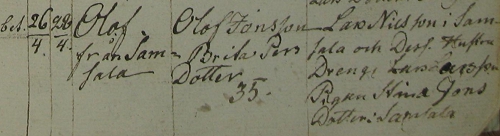 bet. 26/4. 28/4. Olof Olof Jonsson Lars Nilsson i Sam
från Sam- Brita Pers sala och Dess Hustru
sala Dotter Dreng
35. Pigan Stina Jons
Dotter i Samsala